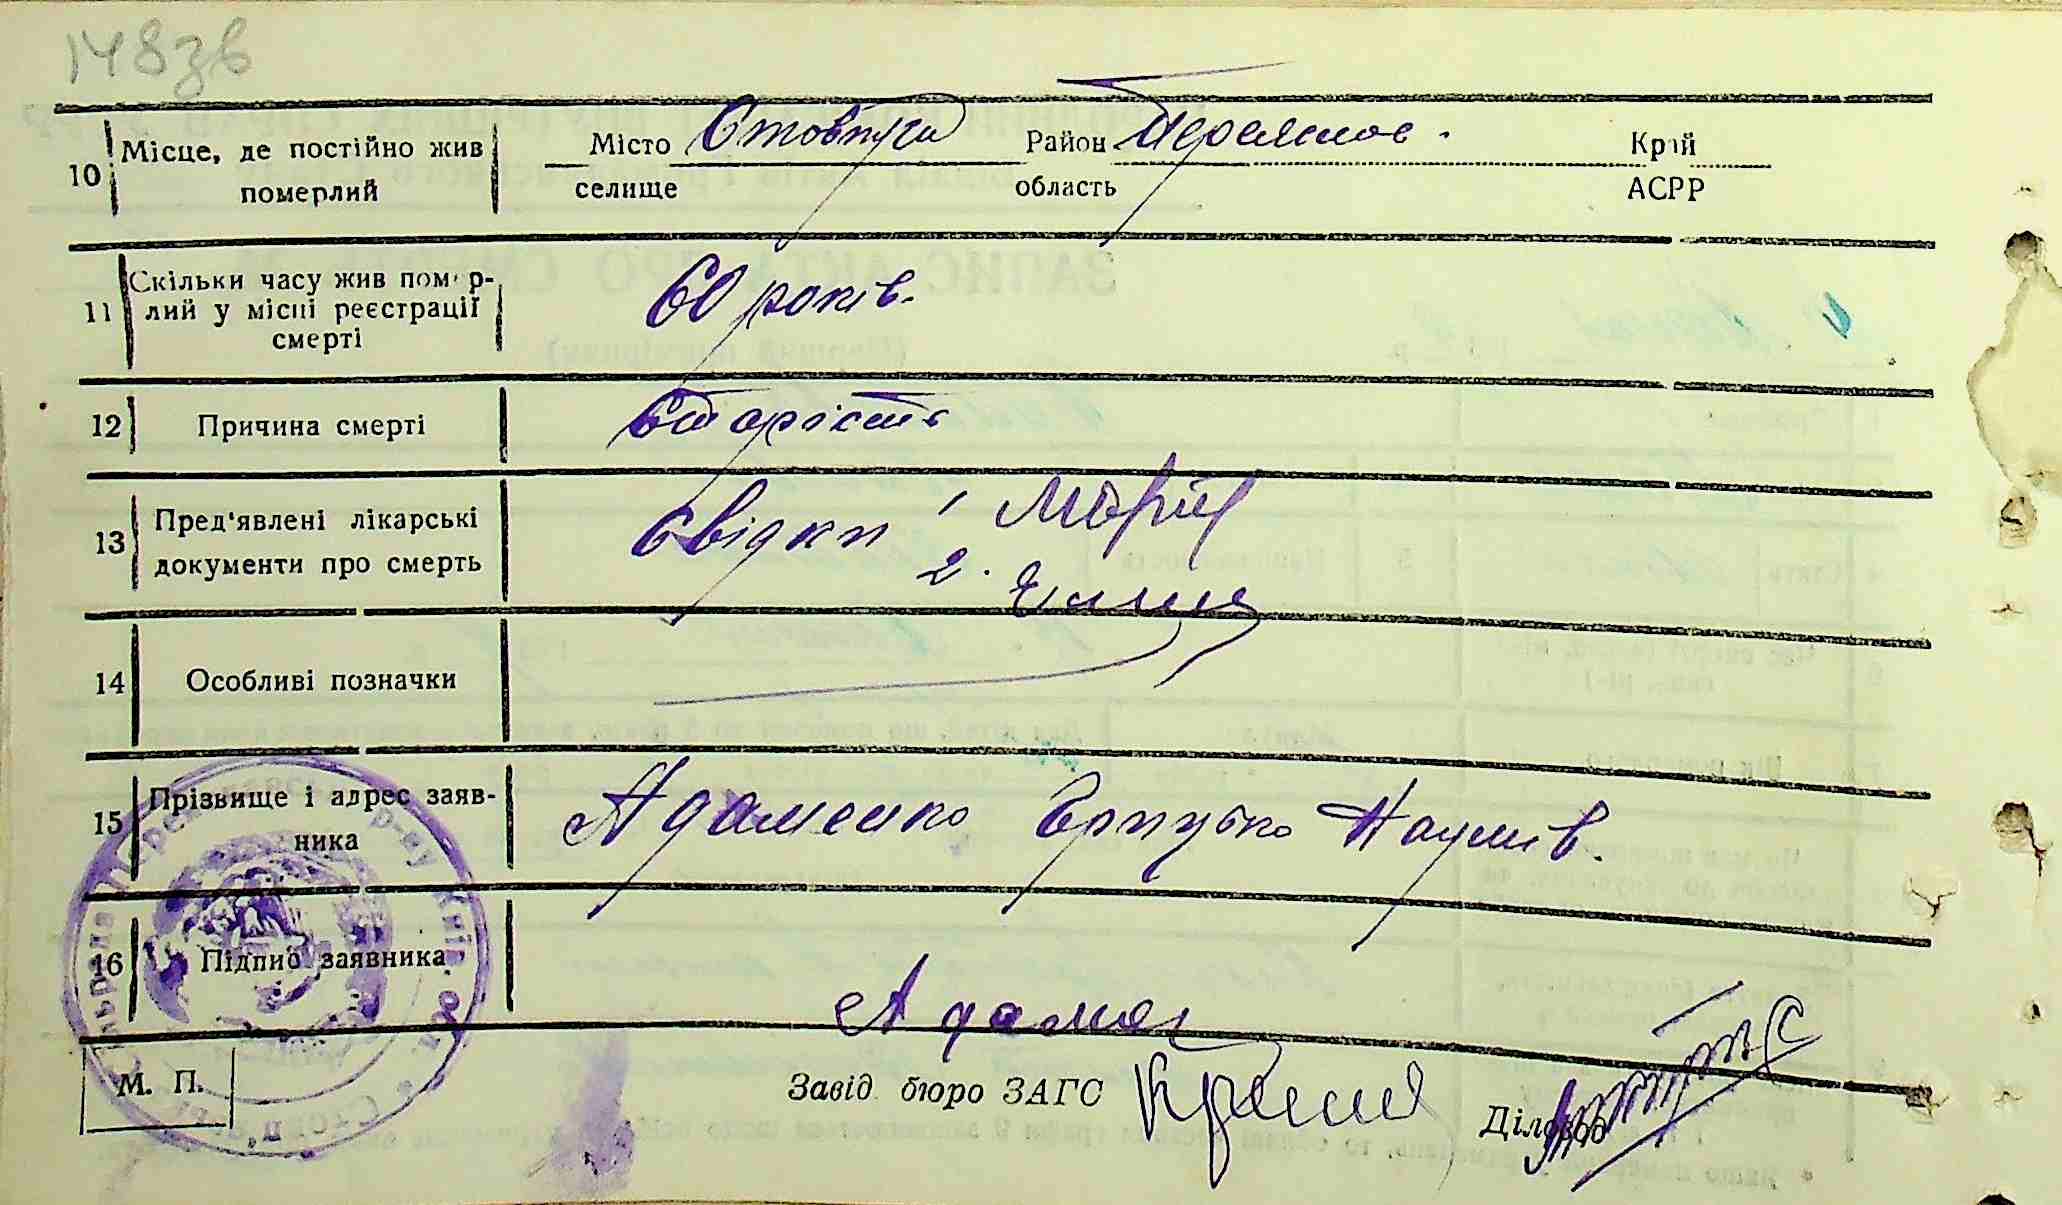 148зв
10 Місце, де постійно жив померлий Місто селище Стовпяги Район область Переяслав. Край АСРР
11 Скільки часу жив померлий у місці реєстрації смерті 60 років.
12 Причина смерті Старість
13 Пред'явлені лікарські документи про смерть Свідки
2.
14 Особливі позначки
15 Прізвище і адрес заявника Адаменко Наумів.
16 Підпис заявника Адамен
М. П. Завід. бюро ЗАГС Діловод